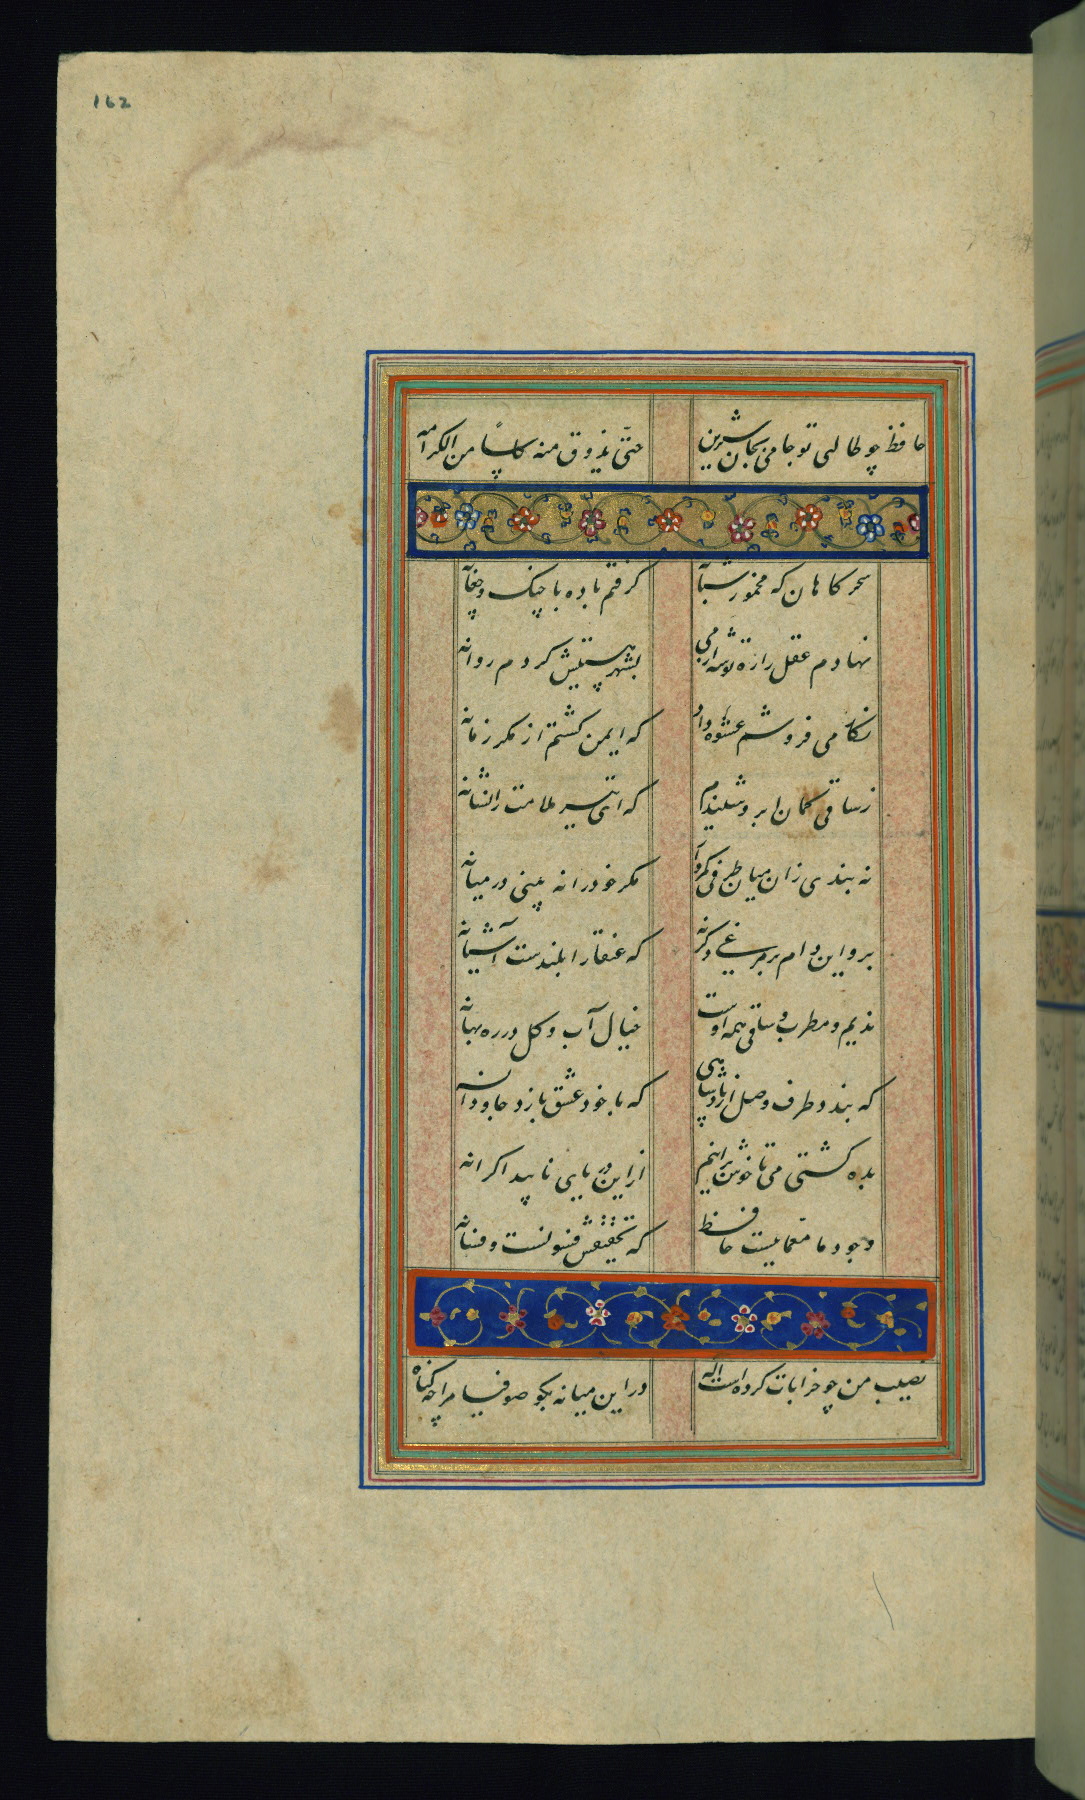 162
حافظ چو طالب تو جامی بجان شیرین
حتّی یذوق منه کاسًا من الکرامه
سحر کاهان که مخمور شبانه
کرفتم باده با چنک و چغانه
نهادم عقل را زه توشه از می
بشهر هستیش کردم روانه
نکار می فروشم عشوه داد
که ایمن کشتم از مکر زمانه
ز ساقی کمان ابرو شنیدم
که ای تیر ملامت را نشانه
نه بندی زان میان طرفی کمروار
مکر خود را نه بینی در میانه
برو این دام بر مرغی دکر نه
که عنقا را بلندست آشیانه
ندیم و مطرب و ساقی همه اوست
خیال آب و کل در ره بهانه
که بندد طرف وصل از شاهی
که با خود عشق بازد جاودانه
بده کشتی می تا خوش برانیم
از این دریای ناپیدا کرانه
وجود ما معماییست حافظ
که تحقیقش فسونست و فسانه
نصیب من چو خرابات کرده است اله
در این میانه بکو صوفیا مرا چه کناه